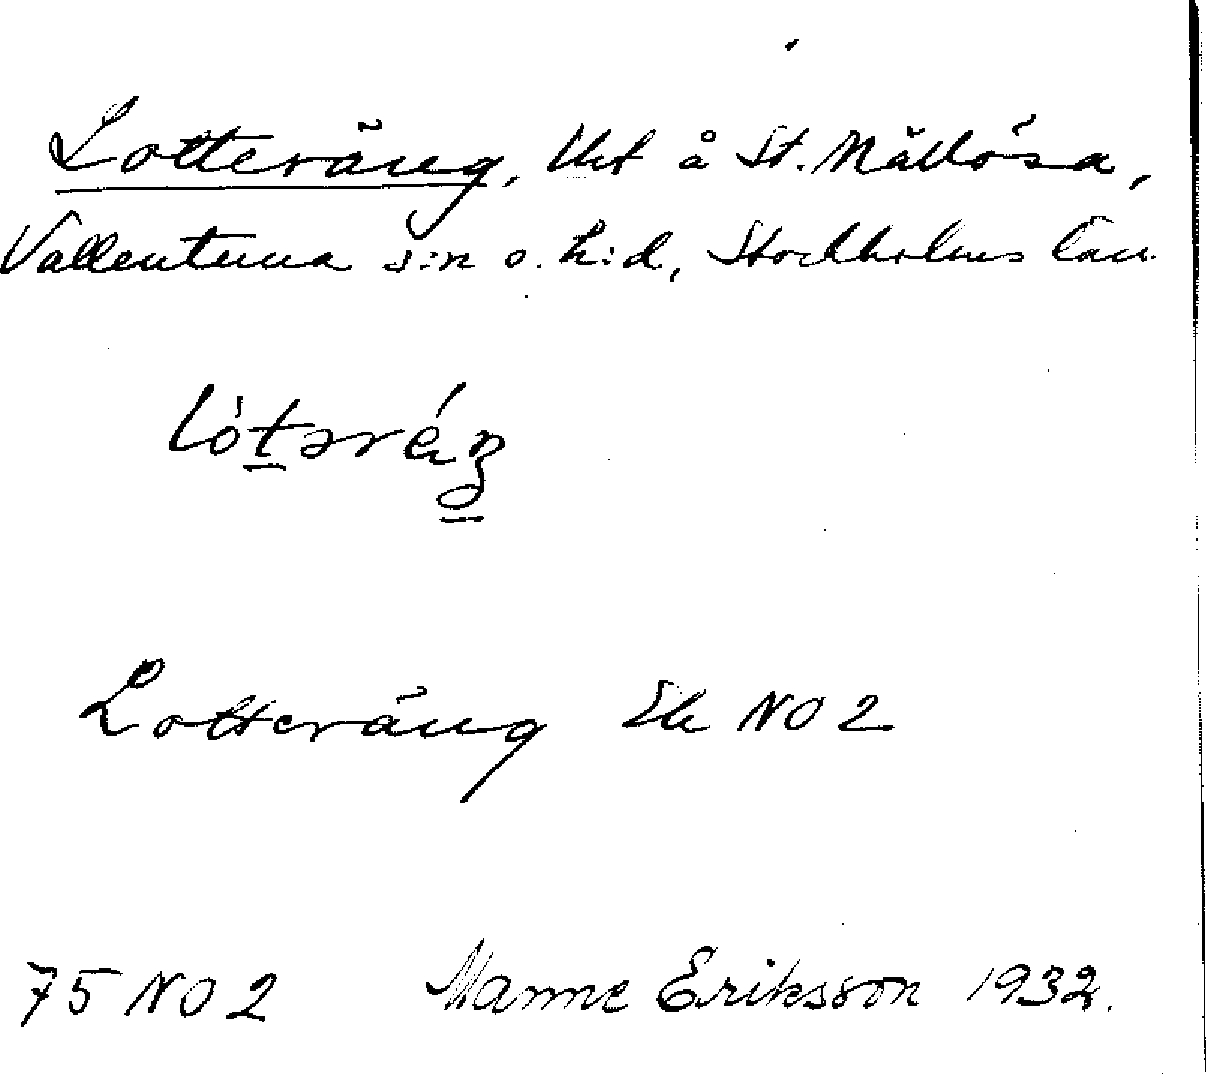 Lotteräng, Utj å St. Mällösa,
Vallentuna s:n o. h:d, Stockholms län.
Lotteräng Ek NO 2
75 NO 2 Manne Eriksson 1932.